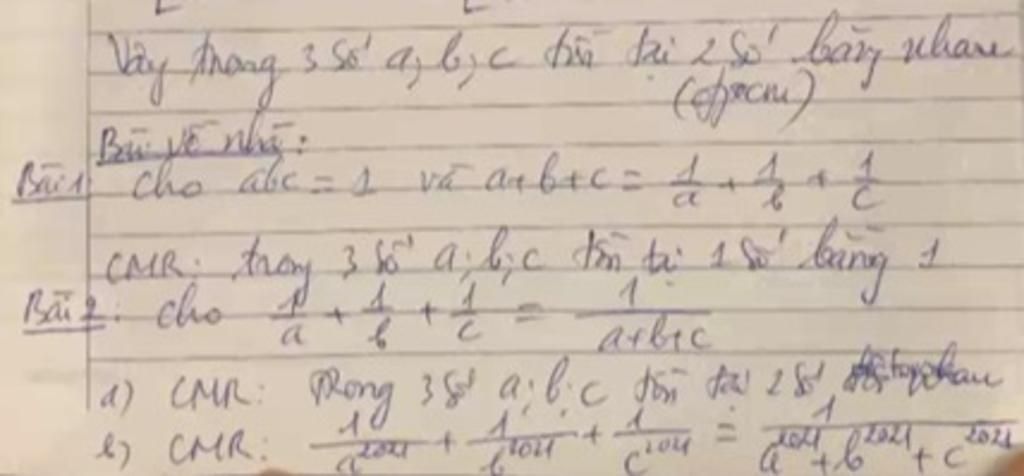 Vậy trong 3 số a; b; c tồn tại 2 số bằng nhau
(đpcm)
Bài về nhà:
Bài 1 Cho abc = 1 và a+b+c = 1/a + 1/b + 1/c
CMR: trong 3 số a; b; c tồn tại 1 số bằng 1
Bài 2: Cho 1/a + 1/b + 1/c = 1/(a+b+c)
a) CMR: Trong 3 số a; b; c tồn tại 2 số
b) CMR: 1/a^2021 + 1/b^2021 + 1/c^2021 = 1/(a^2021 + b^2021 + c^2021)